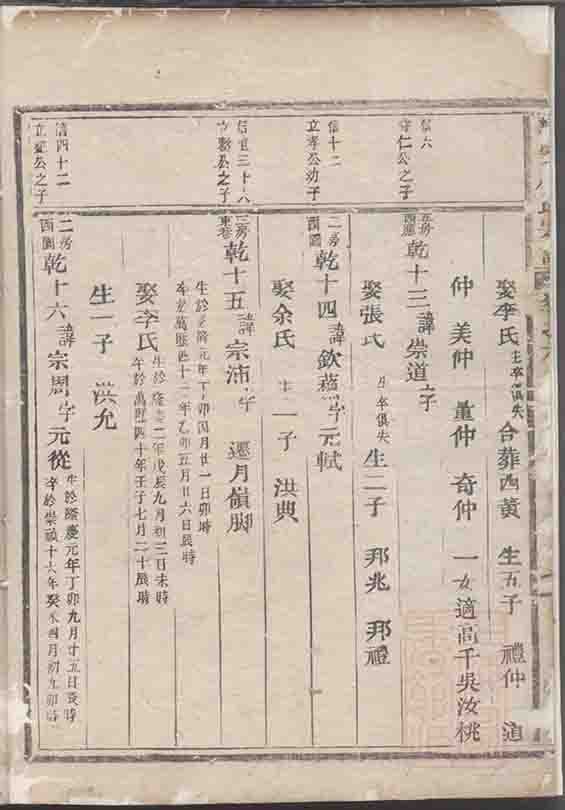 娶李氏 生卒俱失 合葬西黃 生五子 禮仲 道
仲 美仲 量仲 奇仲 一女適高千吳汝桃
信六
守仁公之子
乾十三 諱崇道 字
娶張氏 生卒俱失 生二子 邦兆 邦禮
信十二
立孝公幼子
二房
西園
乾十四 諱欽 字元軾
娶余氏 生一子 洪典
三十六
公之子
乾十五 諱宗沛 字 遷月嶺脚
元年丁卯四月廿一日卯時
十二年乙卯五月廿六日辰時
娶李氏
生於隆慶二年戊辰九月初三日未時
卒於萬歷四十年壬子七月二十辰時
生一子 洪允
信四十二
公之子
二房
西園
乾十六 諱宗周 字元從
生於隆慶元年丁卯九月廿五日亥時
卒於崇禎十六年癸未四月初九卯時